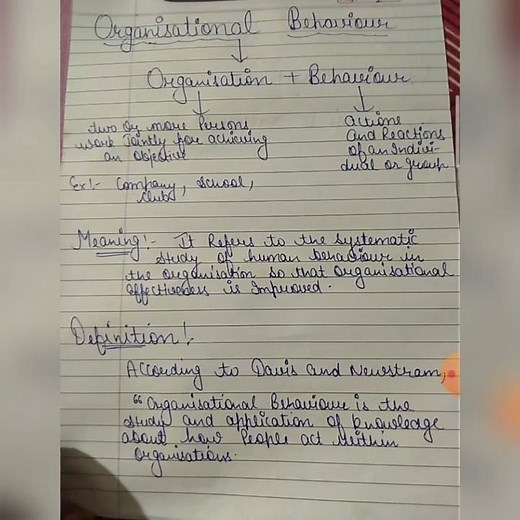 Organisational Behaviour
Organisation + Behaviour
two or more Persons
work Jointly for achieving
an objective
actions
and Reactions
of an Indivi-
dual or group
Ex!- Company, school,
club
Meaning!- It Refers to the systematic
study of human behaviour in
the organisation so that organisational
effectiveness is Improved.
Definition!
According to Davis and Newstram,
"Organisational Behaviour is the
study and application of knowledge
about how People act within
organisations.